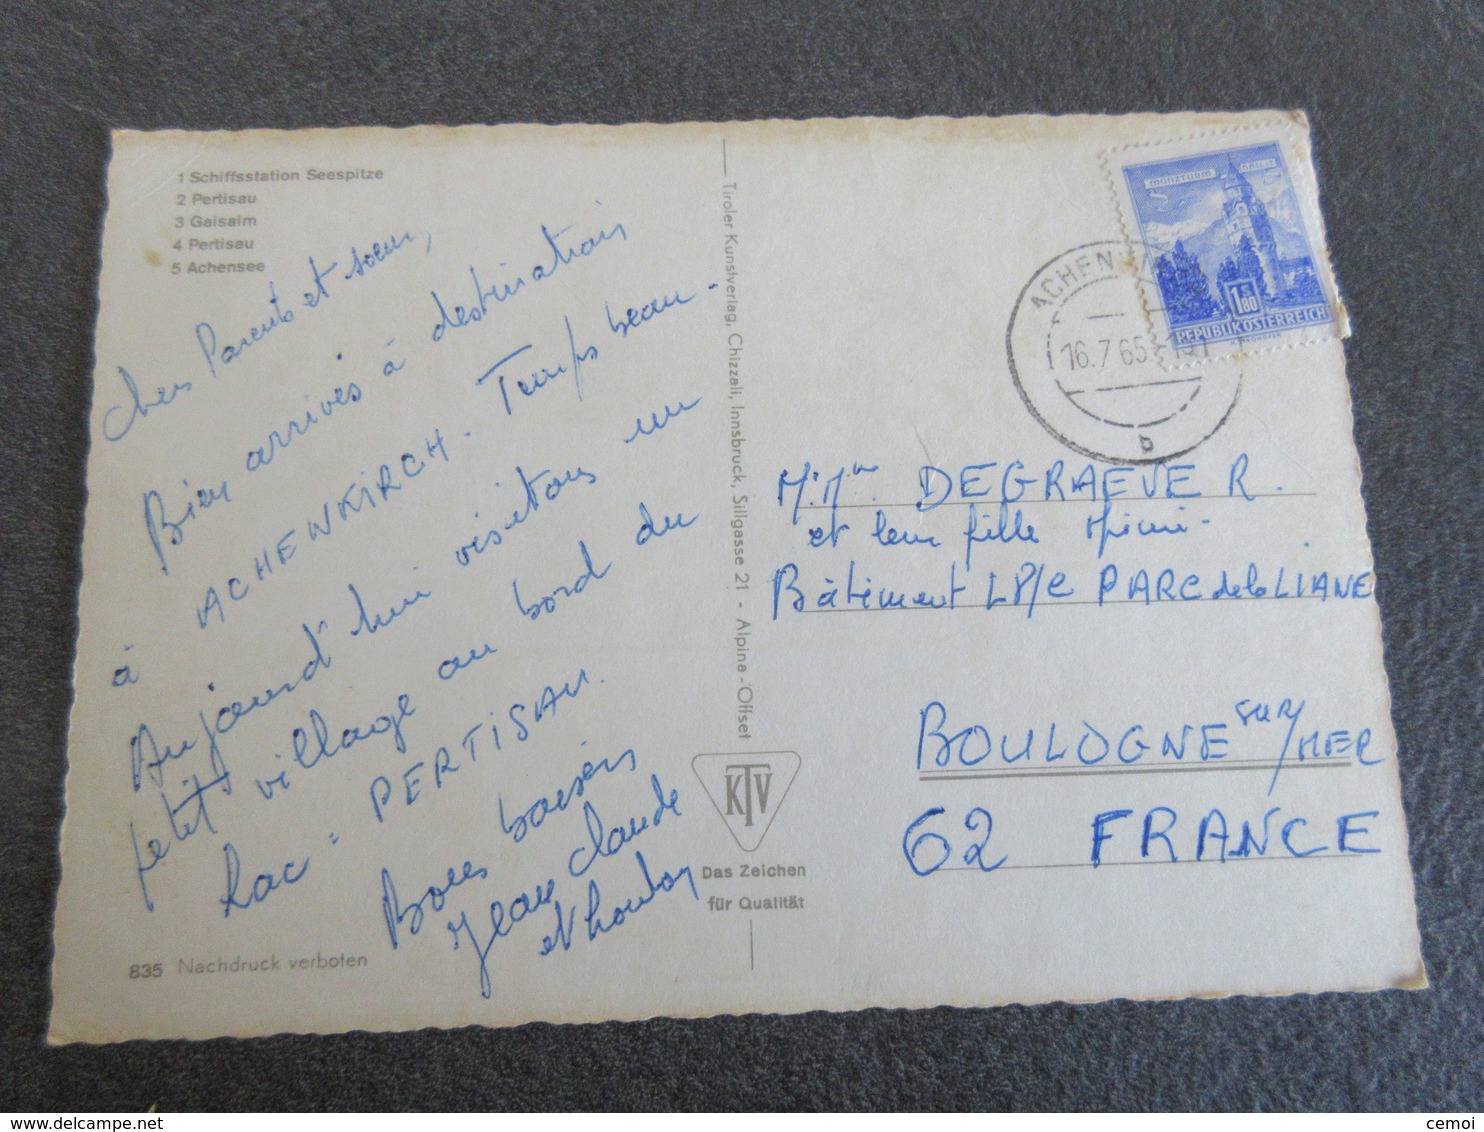 1 Schiffsstation Seespitze
2 Pertisau
3 Gaisalm
4 Pertisau
5 Achensee
Chers Parents et soeur,
Bien arrivés à destination
à ACHENKIRCH. Temps beau.
Aujourd'hui visitons un
petit village au bord du
Lac: PERTISAU.
Bons baisers
Jean Claude
et
835 Nachdruck verboten
Tiroler Kunstverlag, Chizzali, Innsbruck, Sillgasse 21 - Alpina-Offset
KTV
Das Zeichen
für Qualität
MÜNZTURM
1.80
REPUBLIK ÖSTERREICH
ACHEN
16.7.65
b
M. Mme. DEGRAEVE R.
et leur fille Mimi.
Bâtiment LP/C PARC de la LIANE
BOULOGNE sur/MER
62 FRANCE
cemoi
delcampe.net